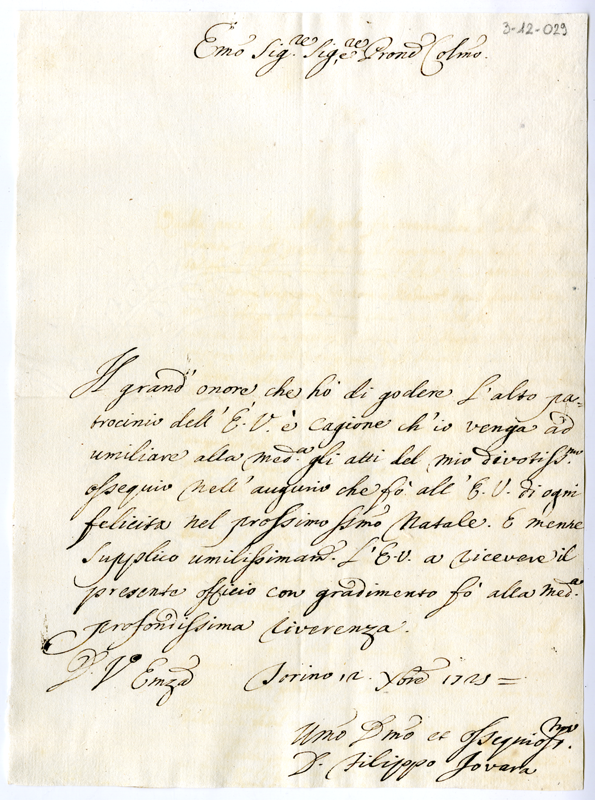 3-12-029
Emo Sig.re Sig.re e Prone Colmo.
Il grand' onore che hò di godere l'alto pa=
trocinio dell' E. V. è cagione ch'io venga ad
umiliare alla med.a gli atti del mio divotiss.mo
ossequio nell' augurio che fò all' E. V. di ogni
felicita nel prossimo Smo Natale. E mentre
supplico umilissimam.te L'E.V. a ricevere il
presente officio con gradimento fò alla med.a
profondissima riverenza.
D. V. Emza Torino 12. Xbre 1725 =
Umo Dmo et ossequiosis.mo
D. Filippo Jovara